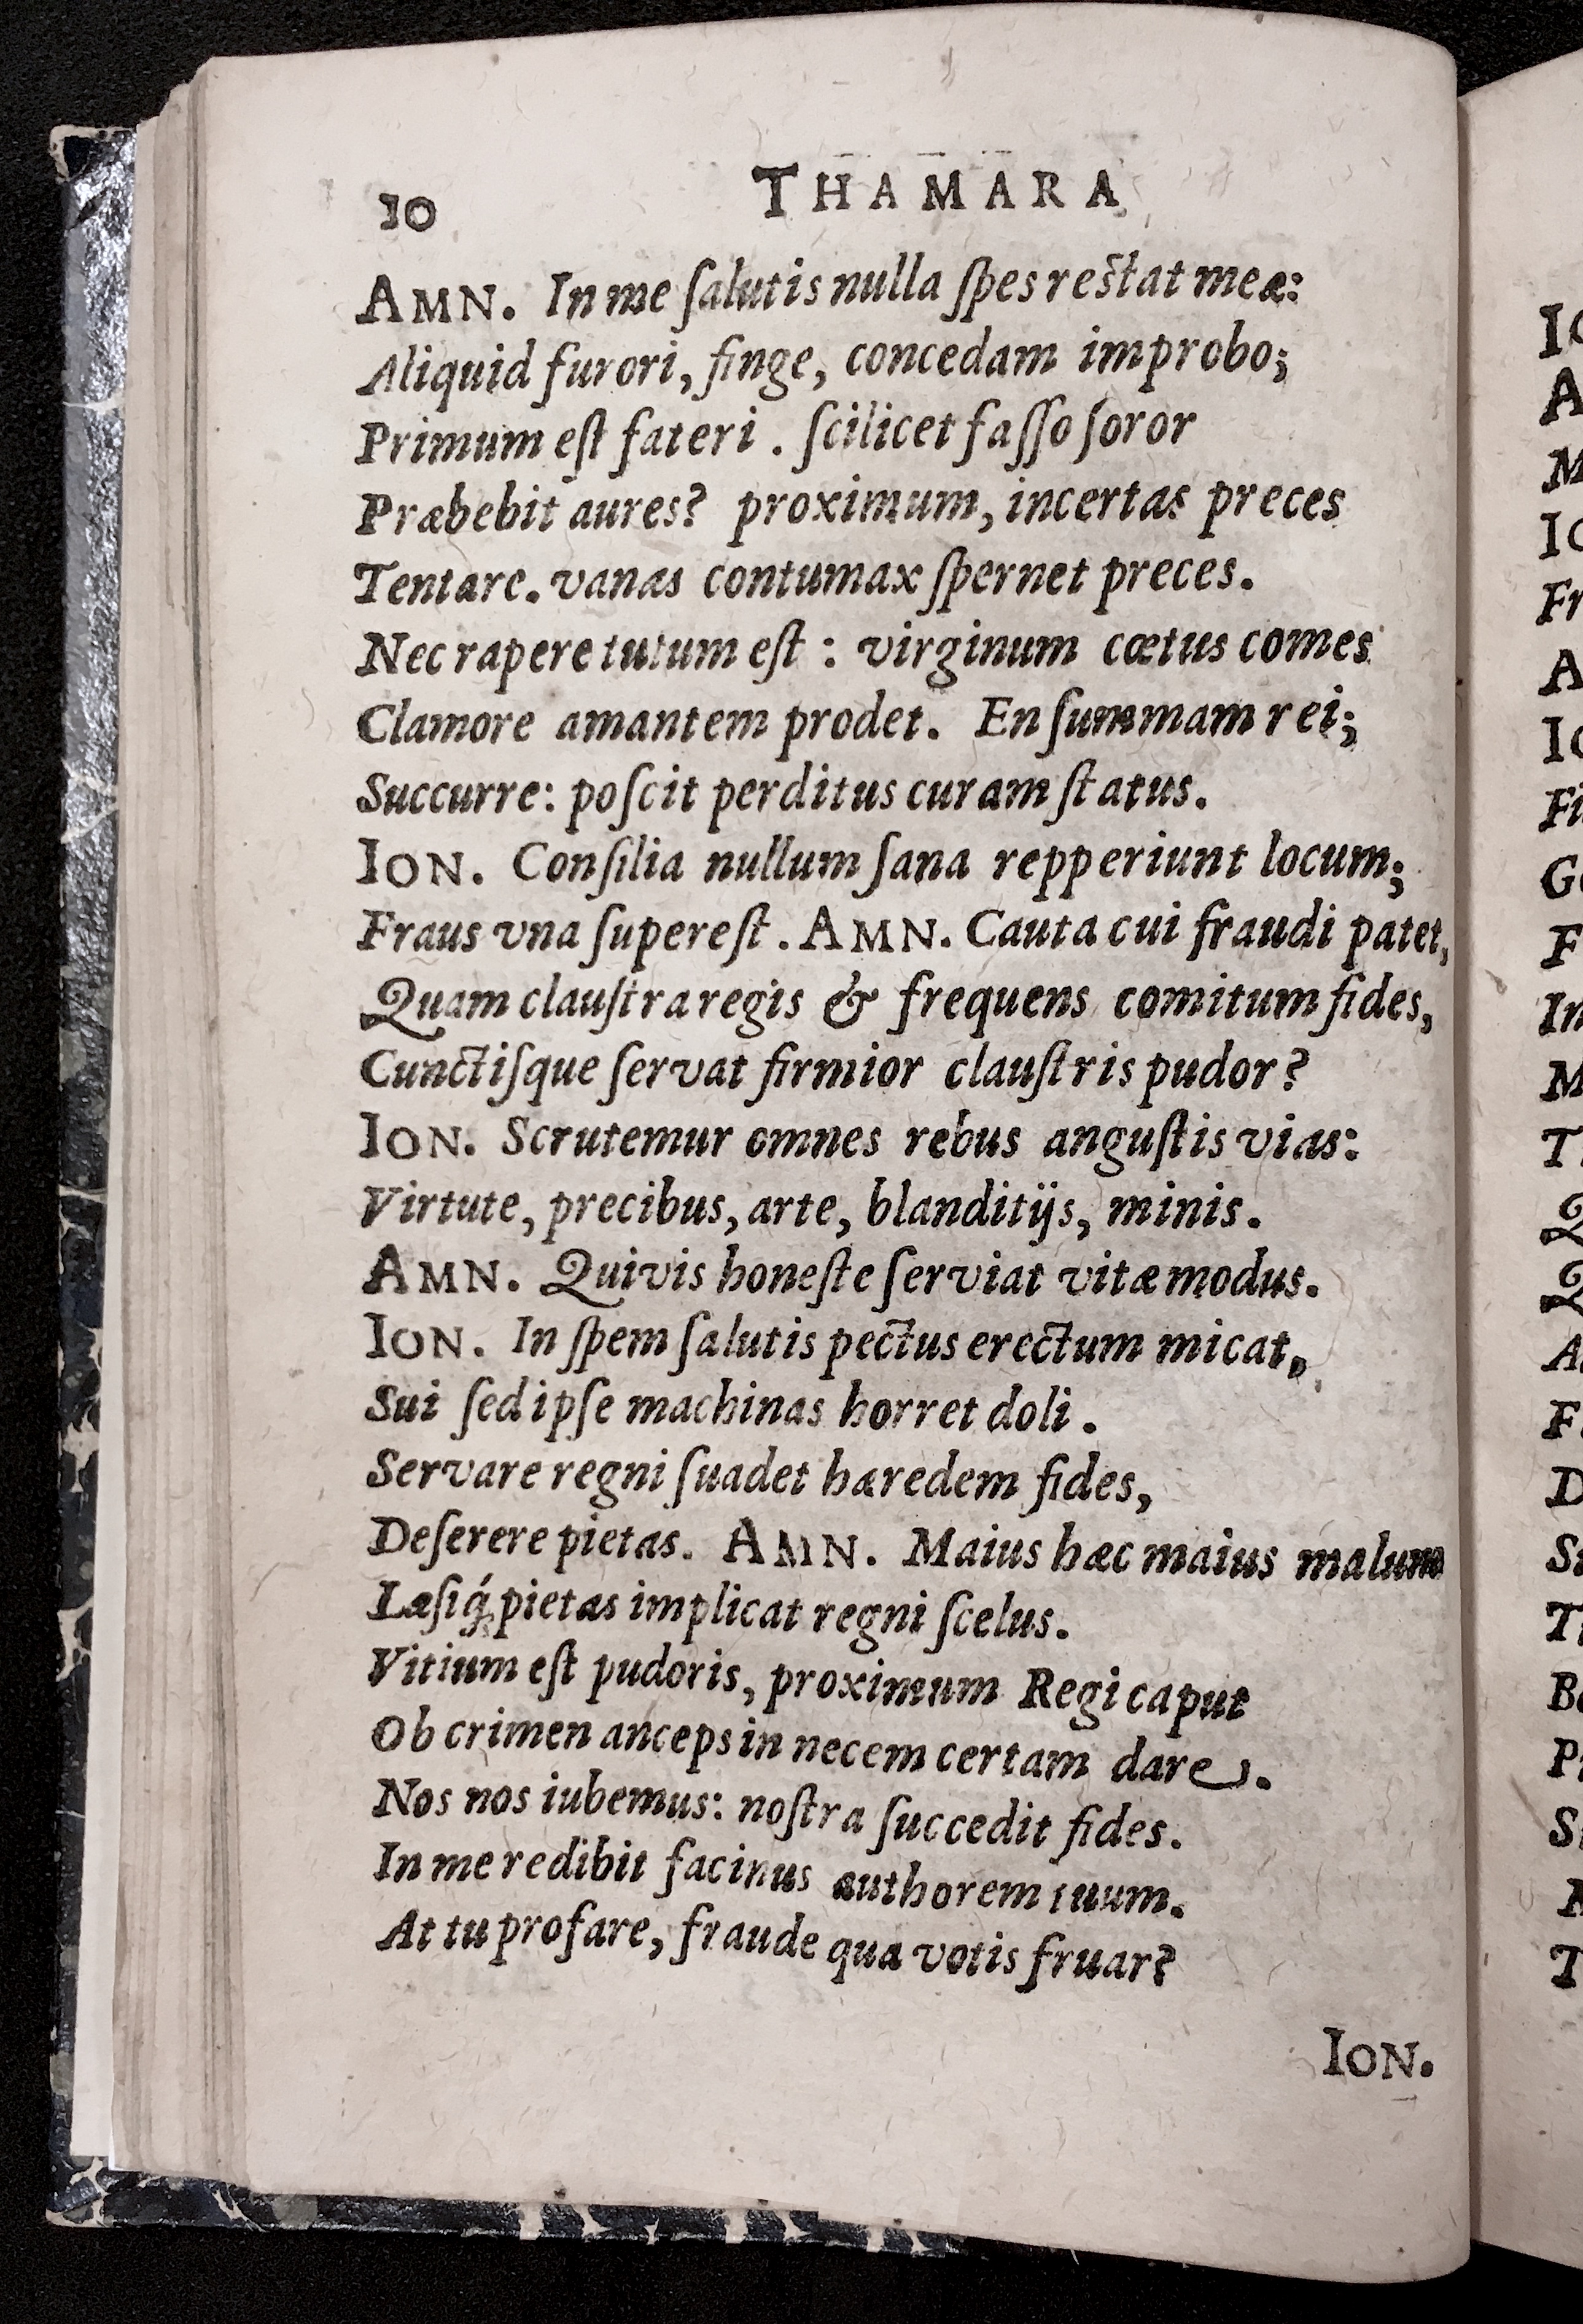 10 THAMARA
AMN. In me ſalutis nulla ſpes reſtat meæ:
Aliquid furori, finge, concedam improbo;
Primum eſt fateri. ſcilicet faſſo ſoror
Præbebit aures? proximum, incertas preces
Tentare. vanas contumax ſpernet preces.
Nec rapere tutum eſt: virginum cœtus comes
Clamore amantem prodet. En ſummam rei;
Succurre: poſcit perditus curam ſtatus.
ION. Conſilia nullum ſana repperiunt locum;
Fraus vna ſupereſt. AMN. Cauta cui fraudi patet,
Quam clauſtra regis & frequens comitum fides,
Cunctiſque ſervat firmior clauſtris pudor?
ION. Scrutemur omnes rebus anguſtis vias:
Virtute, precibus, arte, blanditijs, minis.
AMN. Quivis honeſte ſerviat vitæ modus.
ION. In ſpem ſalutis pectus erectum micat,
Sui ſed ipſe machinas horret doli.
Servare regni ſuadet hæredem fides,
Deſerere pietas. AMN. Maius hæc maius malum
Læſiq́; pietas implicat regni ſcelus.
Vitium eſt pudoris, proximum Regi caput
Ob crimen anceps in necem certam dare.
Nos nos iubemus: noſtra ſuccedit fides.
In me redibit facinus authorem tuum.
At tu profare, fraude qua votis fruar?
ION.